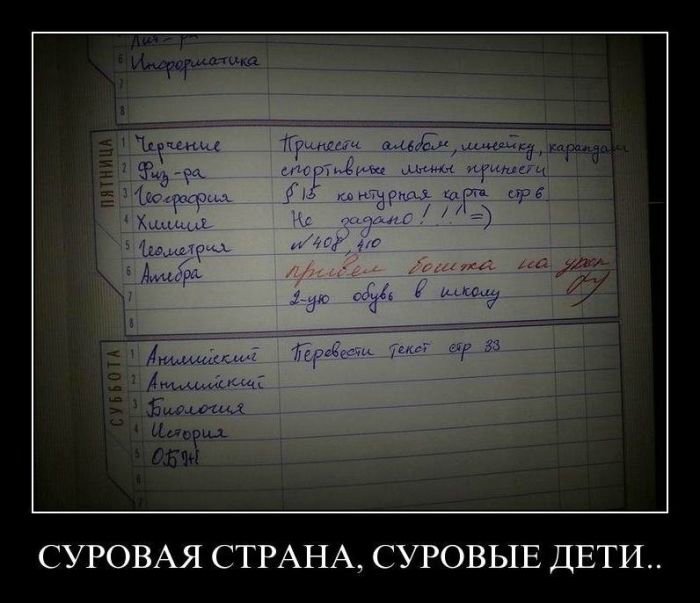 Лит-ра
6 Информатика
7
8
ПЯТНИЦА
1 Черчение Принести альбом, линейку, карандаш
2 Физ-ра спортивные лыжи принести
3 География § 15 контурная карта стр 6
4 Химия Не задано!!! =)
5 Геометрия №408, 410
6 Алгебра привел бомжа на урок
7 2-ую обувь в школу
8
СУББОТА
1 Английский Перевести текст стр 33
2 Английский
3 Биология
4 История
5 ОБЖ
6
7
СУРОВАЯ СТРАНА, СУРОВЫЕ ДЕТИ..